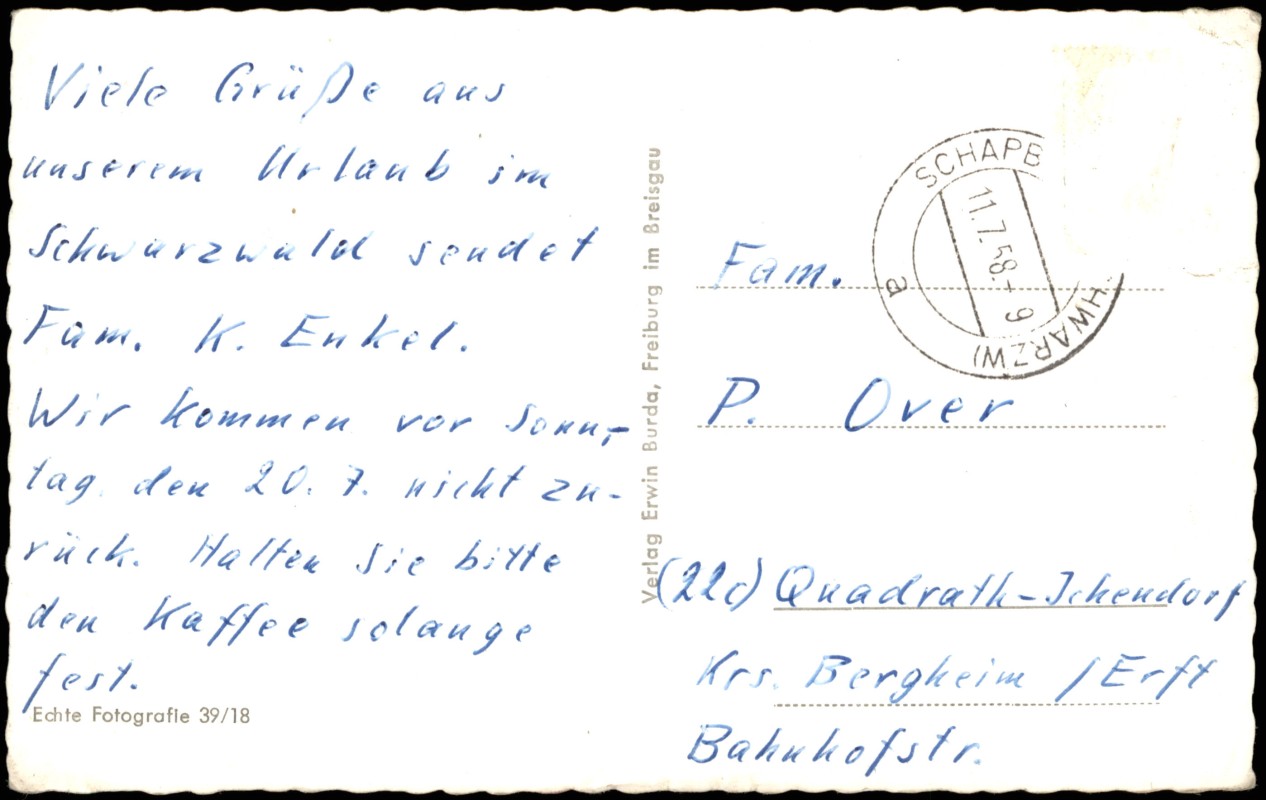 Viele Grüße aus
unserem Urlaub im
Schwarzwald sendet
Fam. K. Enkel.
Wir kommen vor Sonn-
tag, den 20. 7. nicht zu-
rück. Halten Sie bitte
den Kaffee solange
fest.
Echte Fotografie 39/18
Verlag Erwin Burda, Freiburg im Breisgau
SCHAPB
11.7.58.-9
a
(SCHWARZW
Fam.
P. Over
(22c) Quadrath-Ichendorf
Krs. Bergheim / Erft
Bahnhofstr.